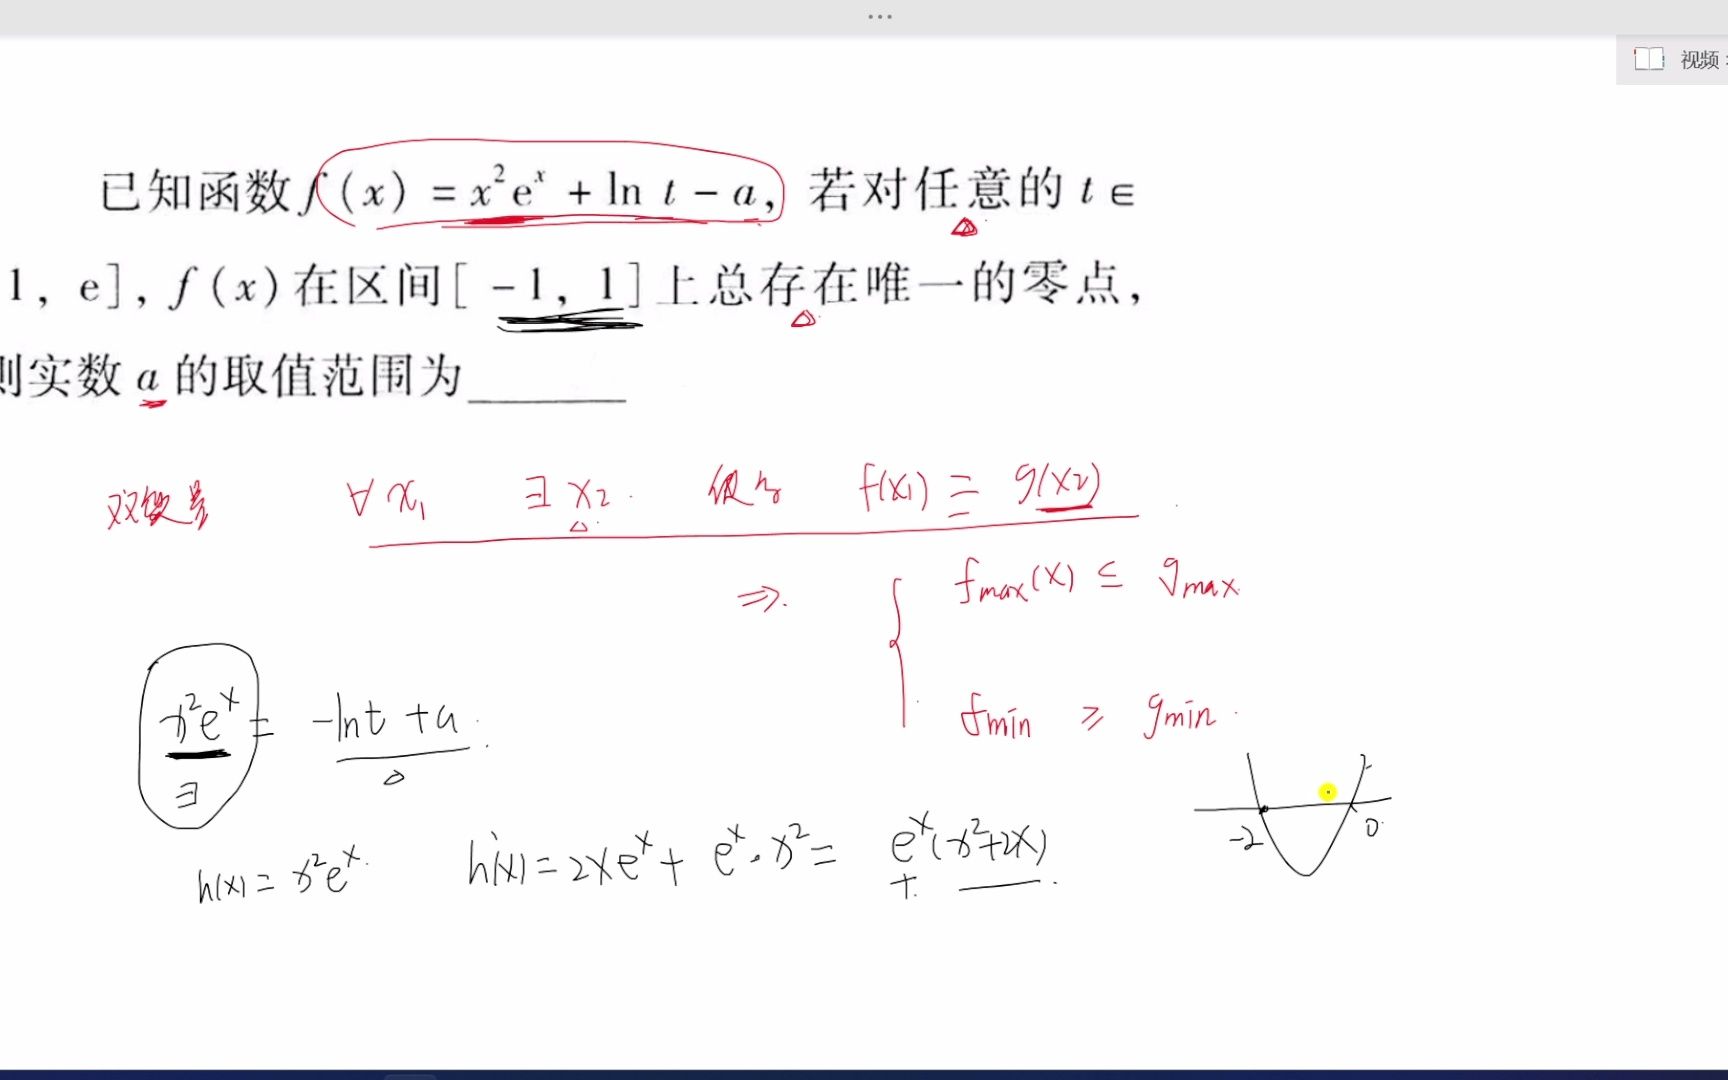 视频
已知函数 f(x) = x²eˣ + ln t - a, 若对任意的 t ∈
1, e], f(x)在区间[ -1, 1]上总存在唯一的零点,
则实数 a 的取值范围为______
双变量 ∀ x₁ ∃ x₂. 使得 f(x₁) = g(x₂)
⇒. { fmax(x) ≤ gmax
fmin ≥ gmin
x²eˣ = -lnt + a
∃
h(x) = x²eˣ. h'(x) = 2xeˣ + eˣ·x² = eˣ(x²+2x)
+
-2 0